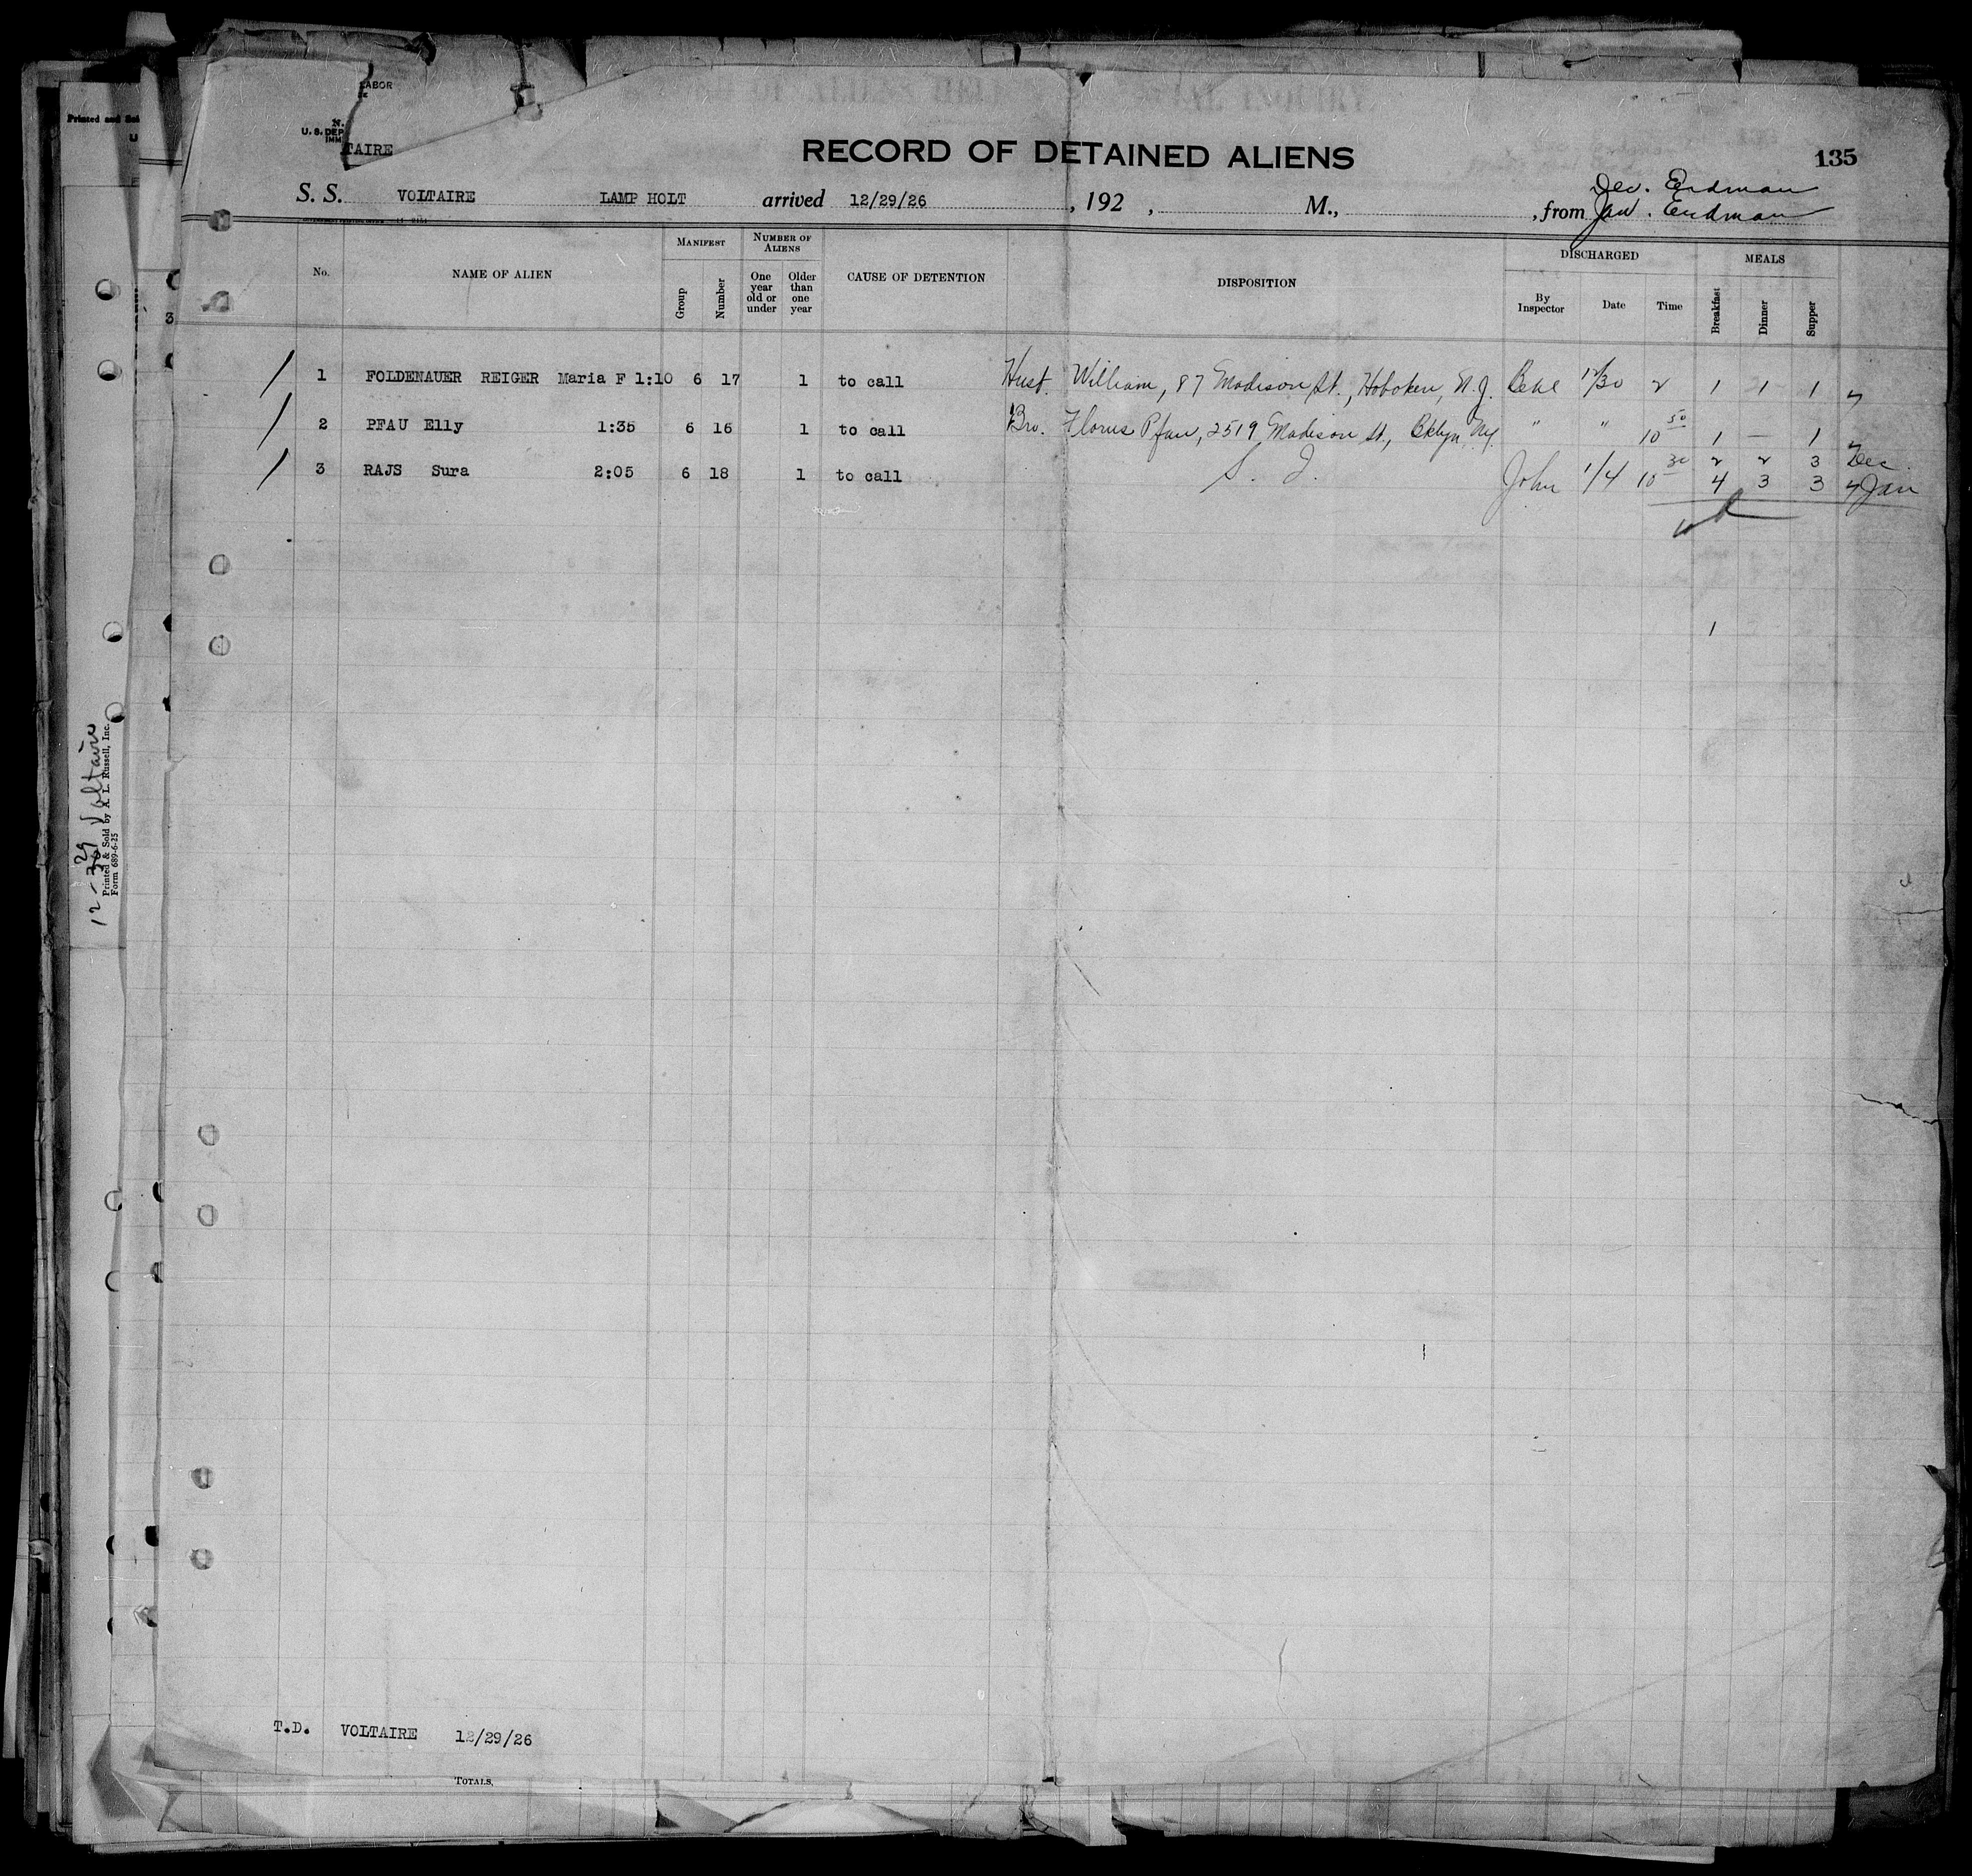 LABOR
Printed and
U. S. DEP
IMM
TAIRE
RECORD OF DETAINED ALIENS
135
S. S. VOLTAIRE LAMP HOLT arrived 12/29/26, 192 , M., , from Jan. Erdman
Dec. Erdman
No. NAME OF ALIEN MANIFEST Group Number NUMBER OF ALIENS One year old or under Older than one year CAUSE OF DETENTION DISPOSITION DISCHARGED By Inspector Date Time MEALS Breakfast Dinner Supper
1 FOLDENAUER REIGER Maria F 1:10 6 17 1 to call Hust. William, 87 Madison St., Hoboken, N.J. 12/30 2 1 1 1
2 PFAU Elly 1:35 6 16 1 to call Bro. Florus Pfau, 2519 Madison St., Bklyn, Ny. " " 10 50 1 — 1
3 RAJS Sura 2:05 6 18 1 to call S. I. John 1/4 10 30 2 2 3 Dec.
4 3 3 Jan
1
12-29 Voltaire
Printed & Sold by A. L. Russell, Inc.
Form 689-6-25
T.D. VOLTAIRE 12/29/26
TOTALS,